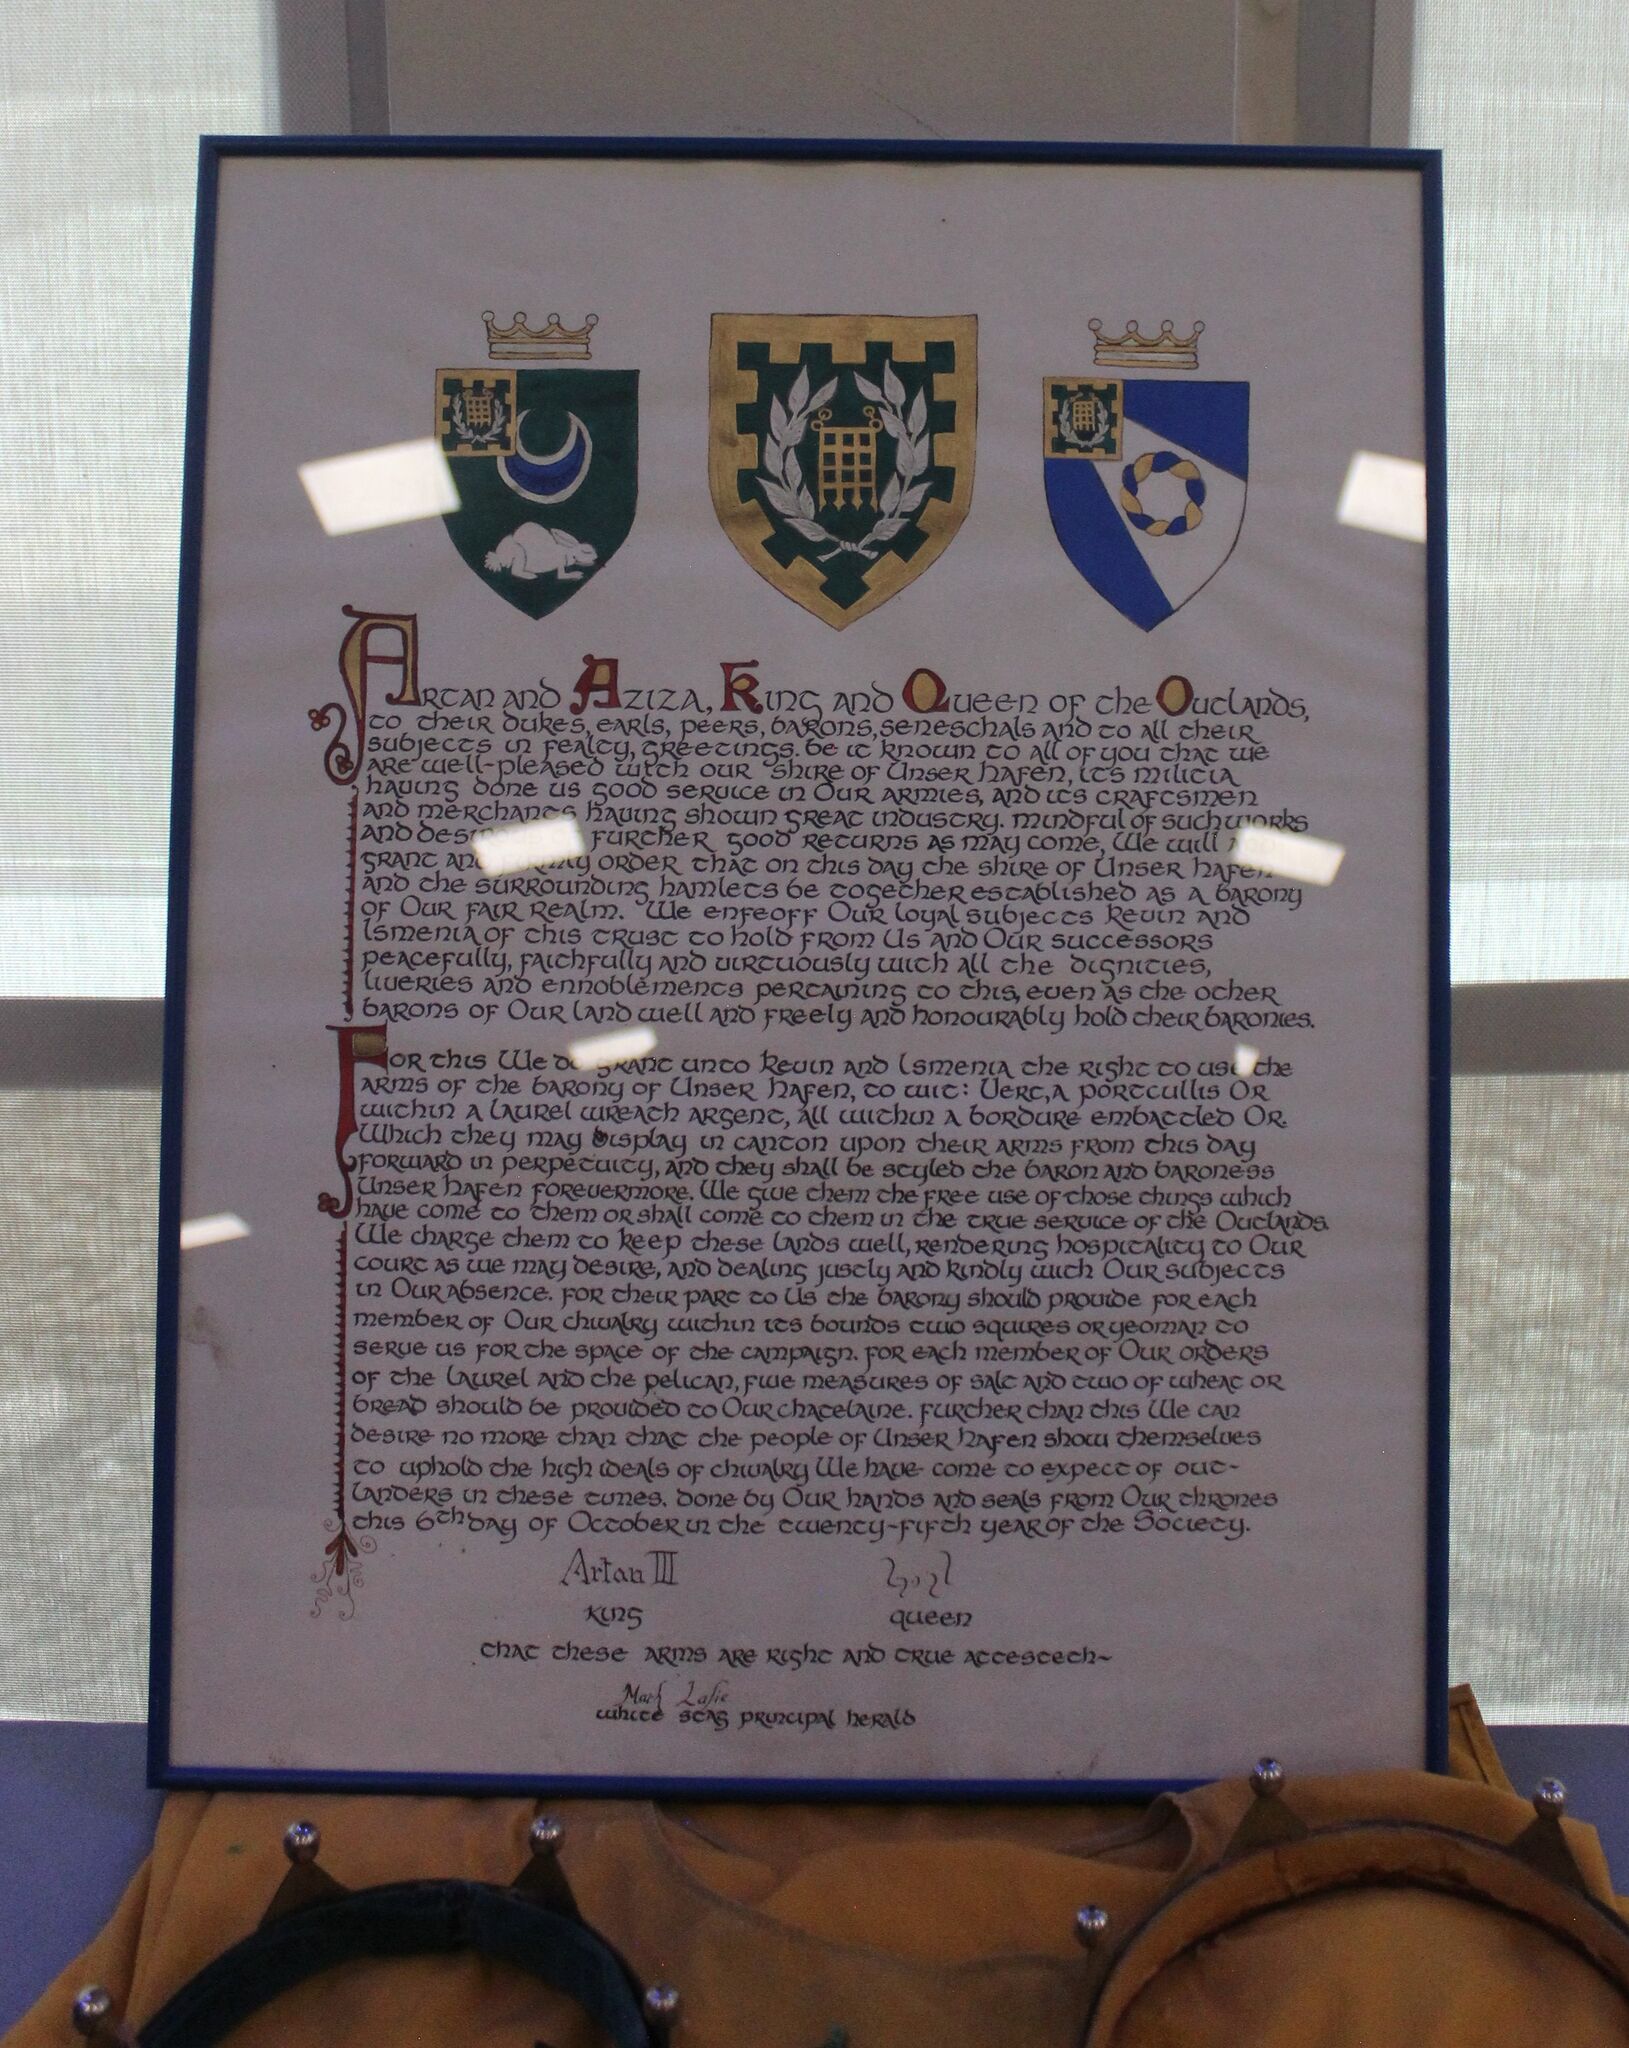 Artan and Aziza, King and Queen of the Outlands,
to their dukes, earls, peers, barons, seneschals and to all their
subjects in fealty, greetings. Be it known to all of you that we
are well-pleased with our shire of Unser Hafen, its militia
having done us good service in Our armies, and its craftsmen
and merchants having shown great industry. Mindful of such works
and further good returns as may come, We will
grant and order that on this day the shire of Unser Hafen
and the surrounding hamlets be together established as a barony
of Our fair realm. We enfeoff Our loyal subjects Kevin and
Ismenia of this trust to hold from Us and Our successors
peacefully, faithfully and virtuously with all the dignities,
liveries and ennoblements pertaining to this, even as the other
barons of Our land well and freely and honourably hold their baronies.
For this We do grant unto Kevin and Ismenia the right to use the
arms of the barony of Unser Hafen, to wit: Vert, a portcullis Or
within a laurel wreath argent, all within a bordure embattled Or.
Which they may display in canton upon their arms from this day
forward in perpetuity, and they shall be styled the baron and baroness
Unser Hafen forevermore. We give them the free use of those things which
have come to them or shall come to them in the true service of the Outlands.
We charge them to keep these lands well, rendering hospitality to Our
court as we may desire, and dealing justly and kindly with Our subjects
in Our absence. For their part to Us the barony should provide for each
member of Our chivalry within its bounds two squires or yeoman to
serve us for the space of the campaign. For each member of Our orders
of the Laurel and the Pelican, five measures of salt and two of wheat or
bread should be provided to Our chatelaine. Further than this We can
desire no more than that the people of Unser Hafen show themselves
to uphold the high ideals of chivalry We have come to expect of Out-
landers in these times. Done by Our hands and seals from Our thrones
this 6th day of October in the twenty-fifth year of the Society.
Artan III
King queen
that these arms are right and true attesteth~
White Stag Principal Herald